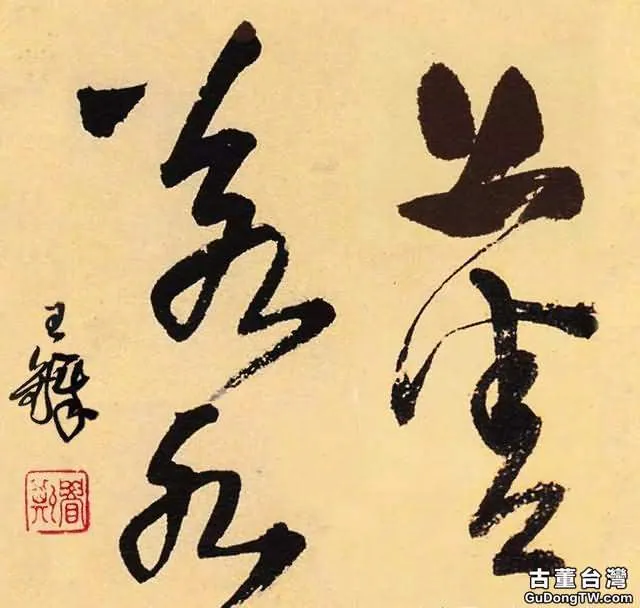 上善
若水
王鐸
古董台灣
GuDongTW.com